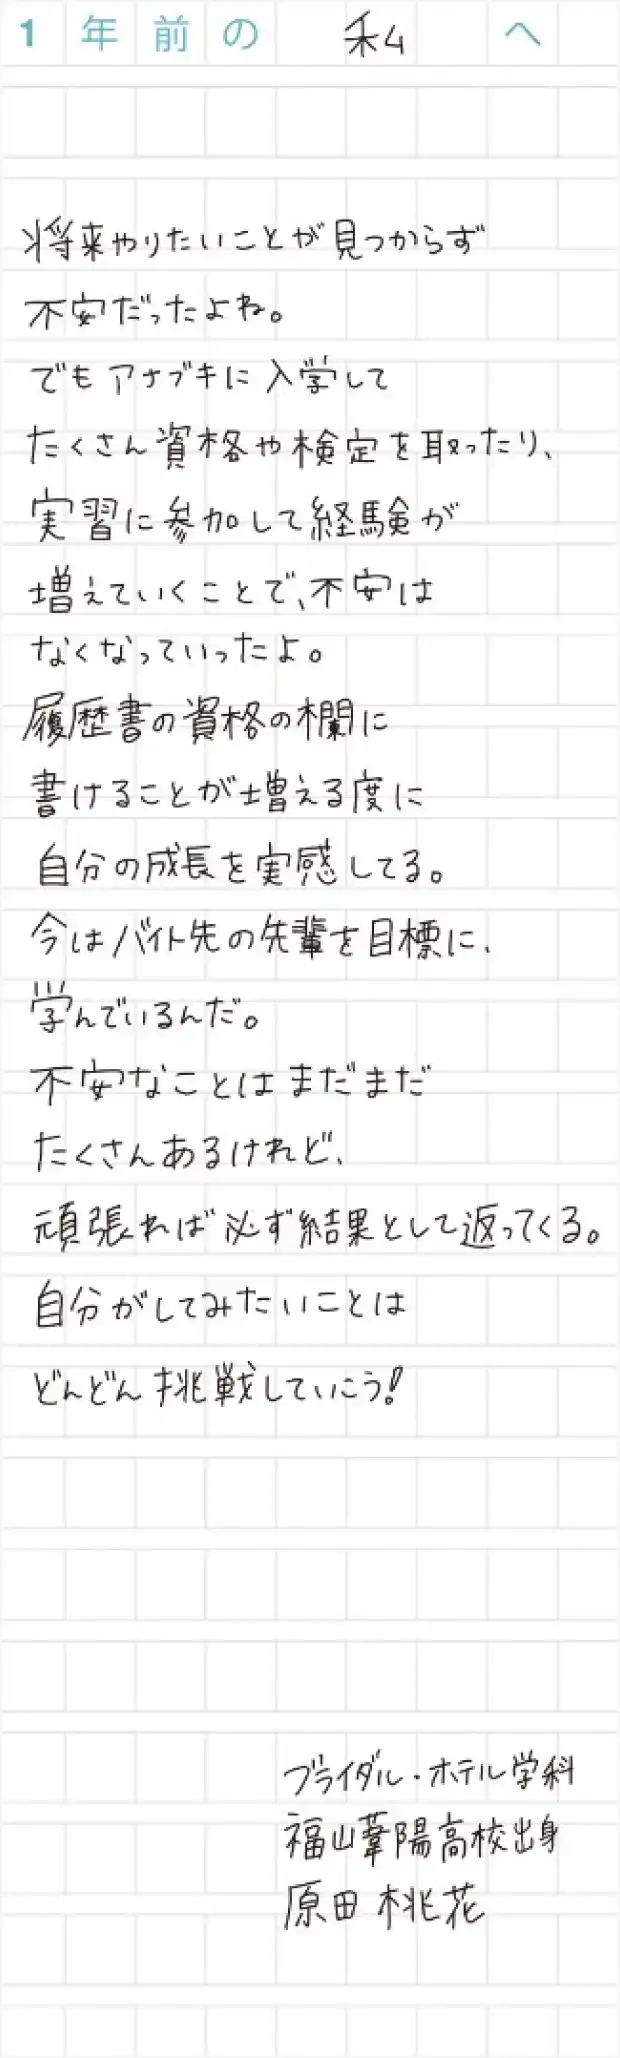 1年前の私へ
将来やりたいことが見つからず
不安だったよね。
でもアナブキに入学して
たくさん資格や検定を取ったり、
実習に参加して経験が
増えていくことで、不安は
なくなっていったよ。
履歴書の資格の欄に
書けることが増える度に
自分の成長を実感してる。
今はバイト先の先輩を目標に、
学んでいるんだ。
不安なことはまだまだ
たくさんあるけれど、
頑張れば必ず結果として返ってくる。
自分がしてみたいことは
どんどん挑戦していこう!
ブライダル・ホテル学科
福山葦陽高校出身
原田 桃花